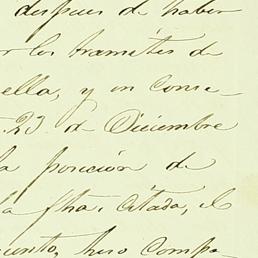 despues de haber
los tramites de
ella, y en conse-
23 de Diciembre
la posicion de
la fha. citada, el
hiso Compa-